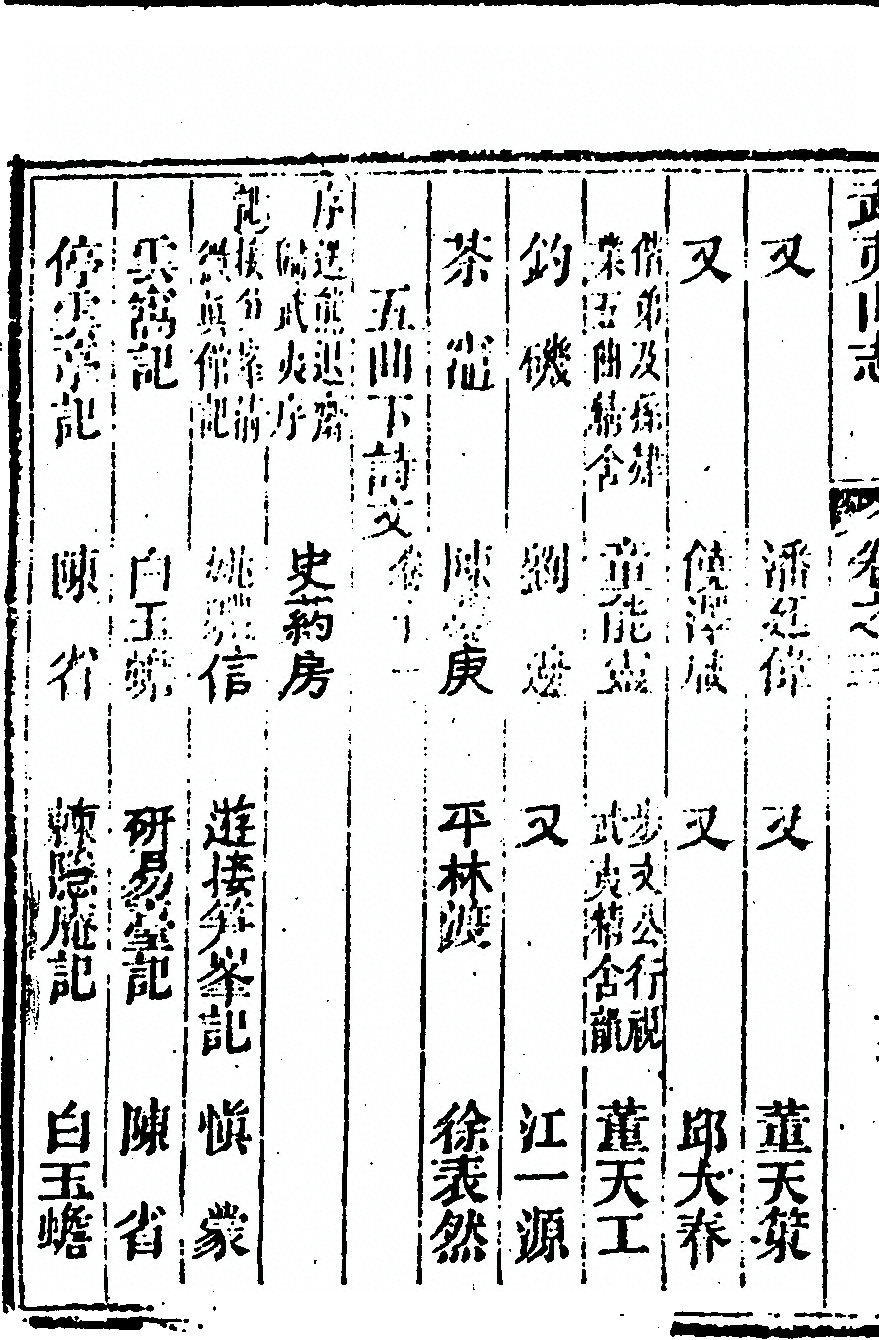 武夷山志 卷之三
又 潘廷偉 又 董天策
又 饒 又 邱大春
偕弟及孫肄業五曲精舍 童能靈 步文公行視武夷精舍韻 董天工
釣磯 劉 又 江一源
茶竈 陳夢庚 平林渡 徐表然
五曲下詩文 卷十一
序 送熊退齋歸武夷序 史藥房
記 接笋峯清微真館記 姚 信 遊接笋峯記 慎蒙
雲窩記 白玉蟾 研易臺記 陳省
停雲亭記 陳省 棘隱庵記 白玉蟾